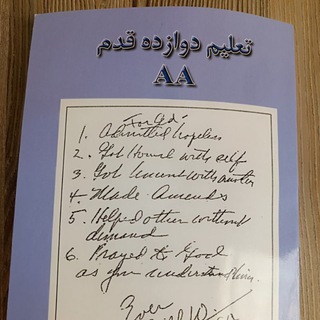 تعلیم دوازده قدم
AA
For Ed:
1. Admitted hopeless
2. Got Honest with self
3. Got honest with another
4. Made Amends
5. Helped other without
demand
6. Prayed to God
as you understand Him.
Ever